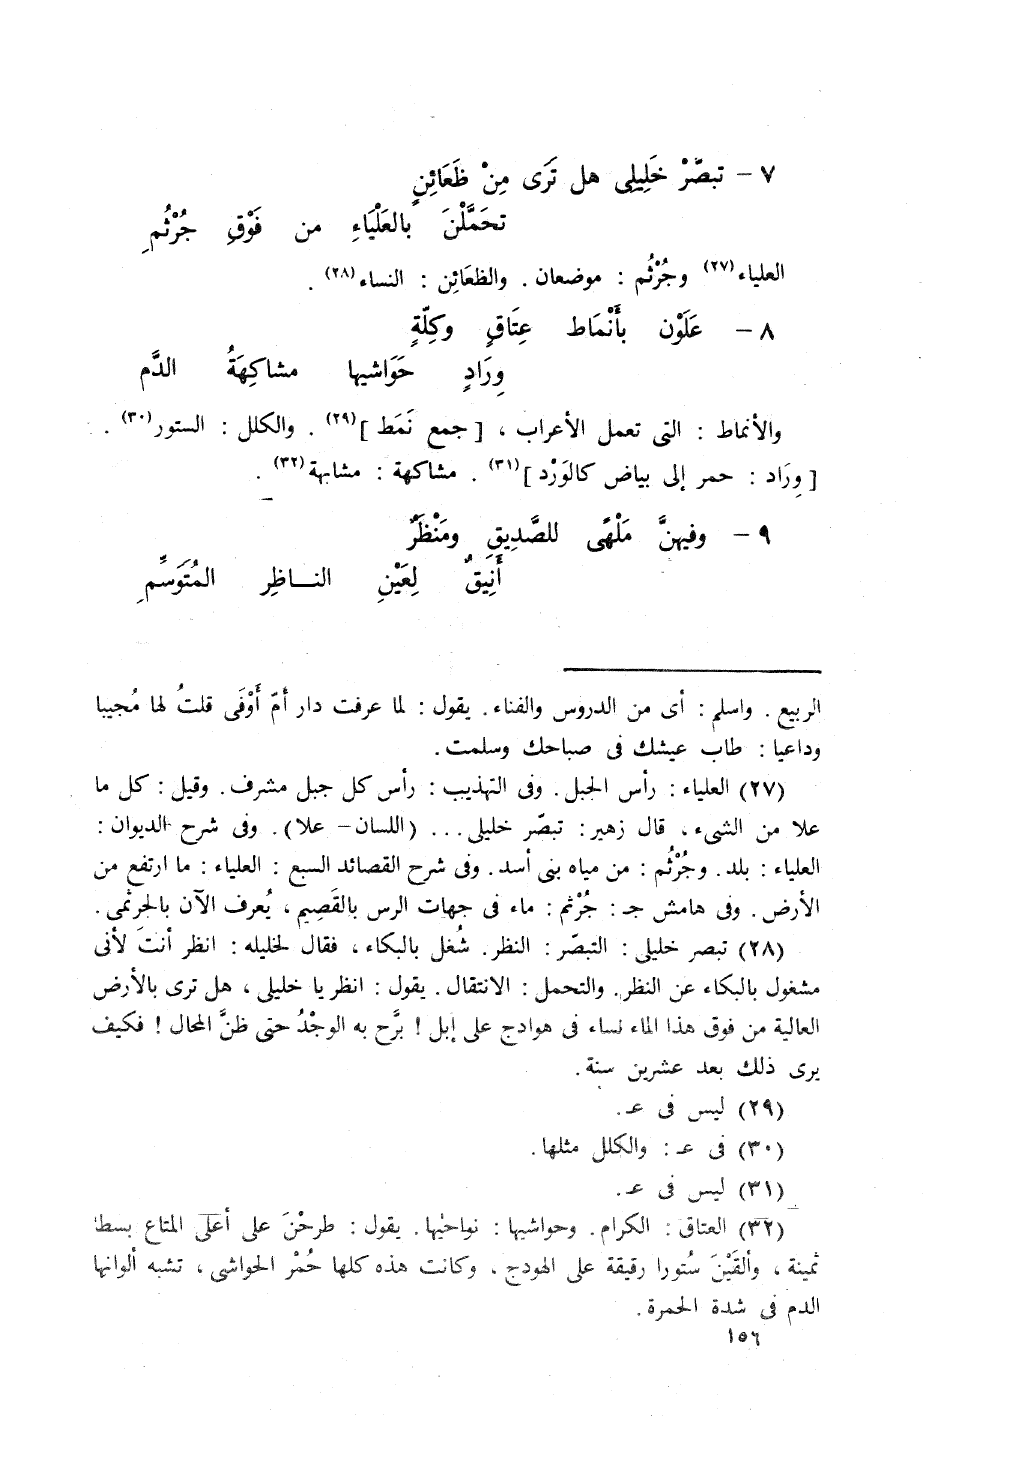 ٧ – تبصَّرْ خَلِيلِى هل تَرَى مِنْ ظَعَائِنٍ
تحَمَّلْنَ بالعَلْيَاءِ من فَوْقِ جُرْثُمِ
العلياء(٢٧) وجُرْثُم : موضعان . والظعَائِن : النساء(٢٨) .
٨ – عَلَوْن بأَنْمَاط عِتَاقٍ وكِلّةٍ
وِرَادٍ حَوَاشيها مشاكِهَةُ الدَّم
والأنماط : التى تعمل الأعراب ، [ جمع نَمَط ](٢٩) . والكلل : الستور(٣٠) .
[ وِرَاد : حمر إلى بياض كالوَرْد ](٣١) . مشاكهة : مشابهة(٣٢) .
٩ – وفيهنَّ مَلْهًى للصَّدِيقِ ومَنْظَرٌ
أَنِيقٌ لِعَيْنِ النـــاظِر المُتَوَسِّمِ
الربيع . واسلم : أى من الدروس والفناء . يقول : لما عرفت دار أمّ أَوْفَى قلتُ لها مُجيبا
وداعيا : طاب عيشك فى صباحك وسلمت .
(٢٧) العلياء : رأس الجبل . وفى التهذيب : رأس كل جبل مشرف . وقيل : كل ما
علا من الشىء ، قال زهير : تبصّر خليلى ... (اللسان – علا) . وفى شرح الديوان :
العلياء : بلد . وجُرْثُم : من مياه بنى أسد . وفى شرح القصائد السبع : العلياء : ما ارتفع من
الأرض . وفى هامش جـ : جُرْثم : ماء فى جهات الرس بالقَصِيم ، يُعرف الآن بالجرثمى .
(٢٨) تبصر خليلى : التبصّر : النظر . شُغل بالبكاء ، فقال لخليله : انظر أنتَ لأنى
مشغول بالبكاء عن النظر . والتحمل : الانتقال . يقول : انظر يا خليلى ، هل ترى بالأرض
العالية من فوق هذا الماء نساء فى هوادج على إبل ! برَّح به الوجْدُ حتى ظنَّ المحال ! فكيف
يرى ذلك بعد عشرين سنة .
(٢٩) ليس فى عـ .
(٣٠) فى عـ : والكلل مثلها .
(٣١) ليس فى عـ .
(٣٢) العتاق : الكرام . وحواشيها : نواحيها . يقول : طرحْنَ على أعلى المتاع بسطا
ثمينة ، وألقَيْنَ سُتورا رقيقة على الهودج ، وكانت هذه كلها حُمْر الحواشى ، تشبه ألوانها
الدم فى شدة الحمرة .
١٥٦